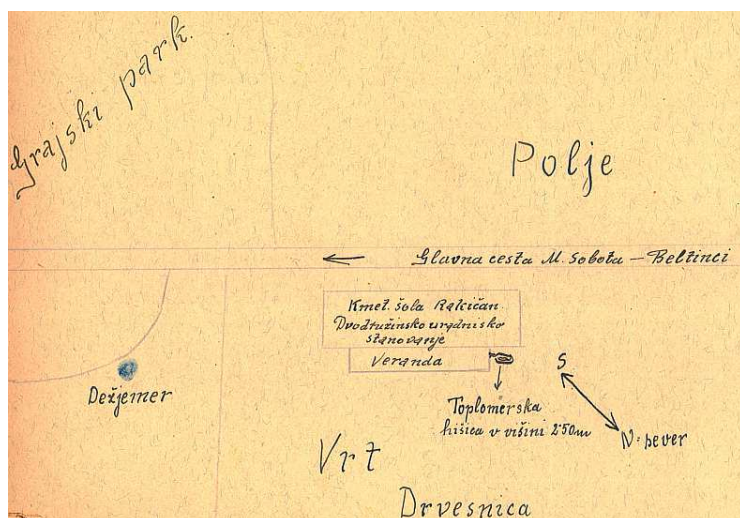 Grajski park.
Polje
Glavna cesta M. Sobota – Beltinci
Kmet. šola Rakičan
Dvodružinsko uradniško
stanovanje
Veranda
S
Dežjemer
Toplomerska
hišica v višini 2·50m
N = sever
Vrt
Drvesnica